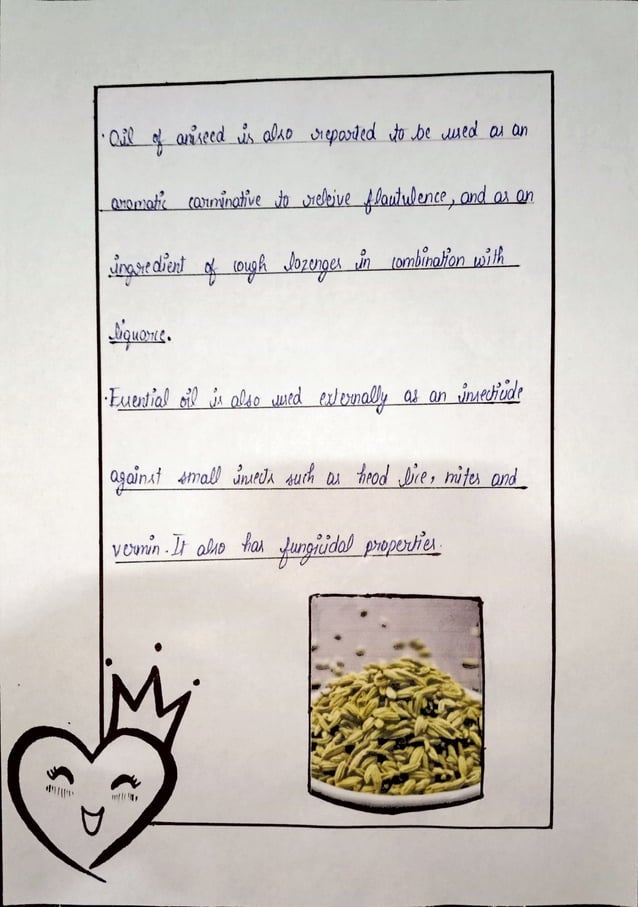 · Oil of aniseed is also reported to be used as an
aromatic carminative to releive flautulence, and as an
ingredient of cough lozenges in combination with
liquorie.
· Essential oil is also used externally as an insecticide
against small insects such as head lice, mites and
vermin. It also has fungicidal properties.